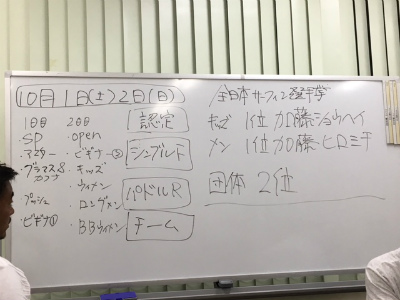 10月1日(土)2日(日)
1日目 2日目
SP ・open
・マスター ・ビギナー②
・キッズ
・ウィメン
・プッシュ ・ロングメン
・ビギナ① ・BBウィメン
認定
シングルト
パドルR
チーム
全日本サーフィン選手権
キッズ 1位 加藤・ショウヘイ
メン 1位 加藤・ヒロミチ
団体 2位